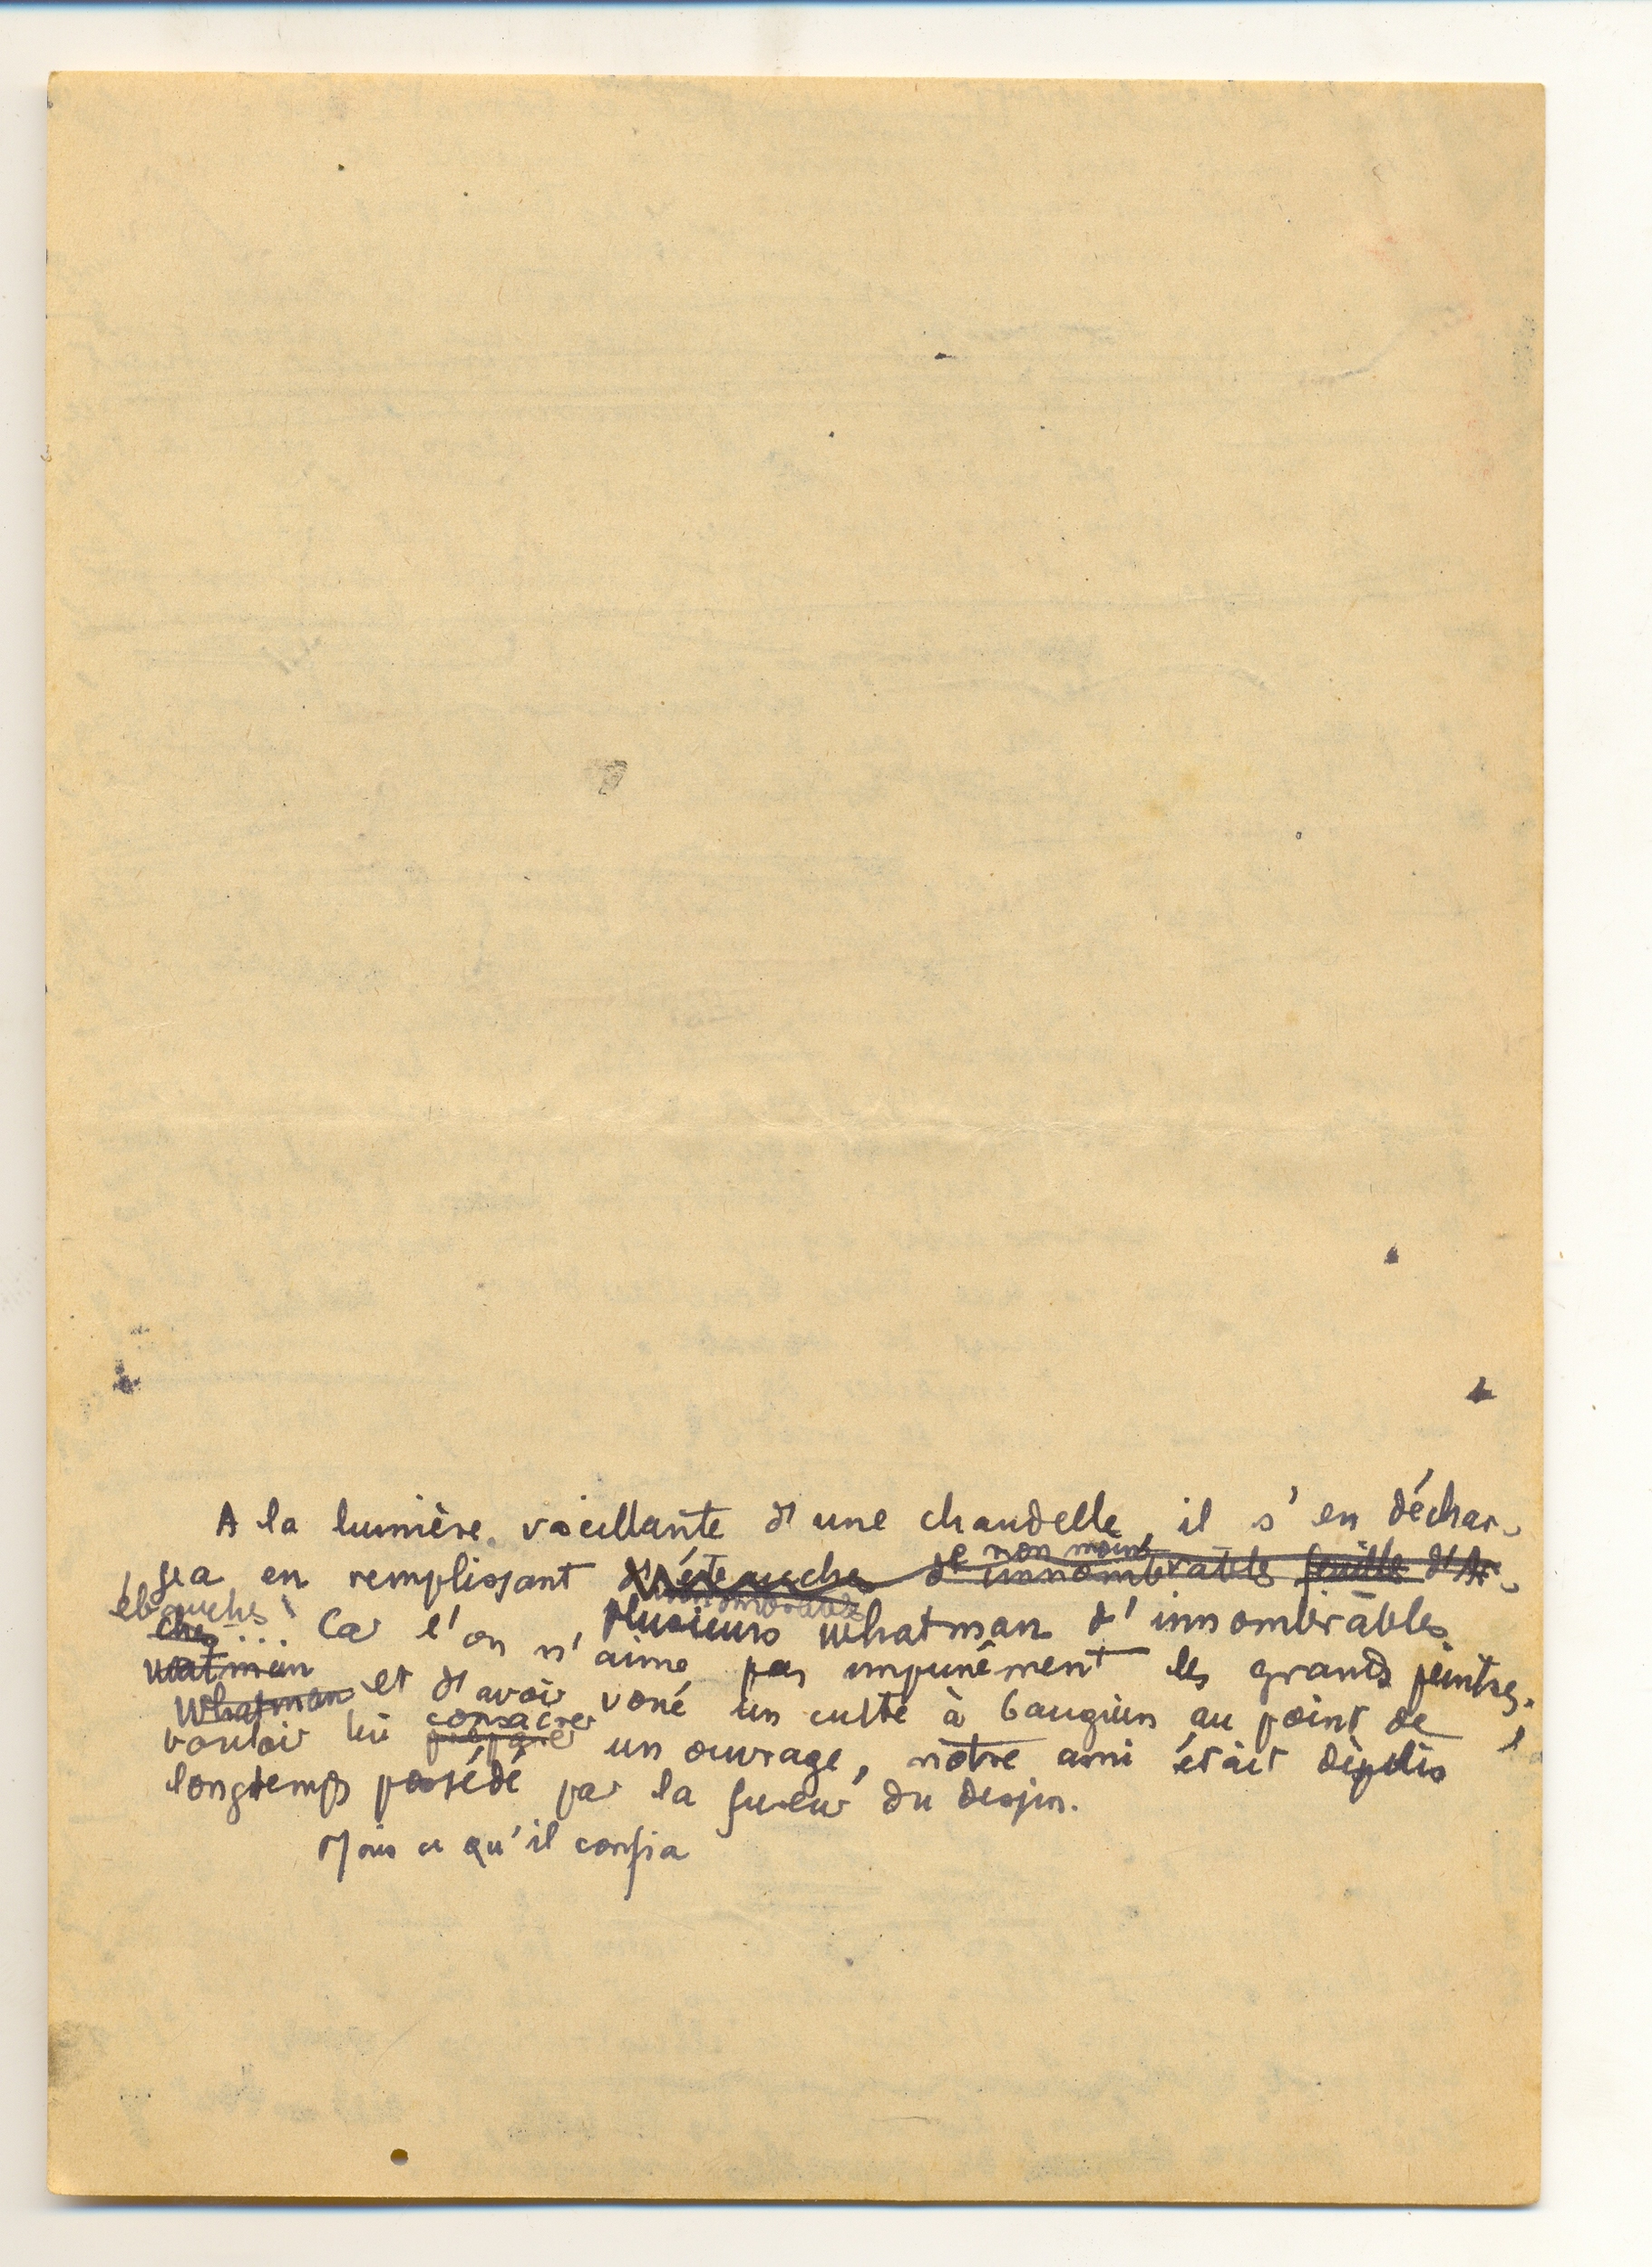 A la lumière vacillante d'une chandelle, il s'en déchar-
gea en remplissant d'ébauches de non moins innombrables feuilles d'Ar-
ches... plusieurs Whatman d'innombrables
ébauches. Car l'on n'aime pas impunément les grands peintres,
watman
Whatman et d'avoir voué un culte à Gauguin au point de
vouloir lui préparer consacrer un ouvrage, notre ami était depuis
longtemps possédé par la fureur du dessin.
Mais ce qu'il confia